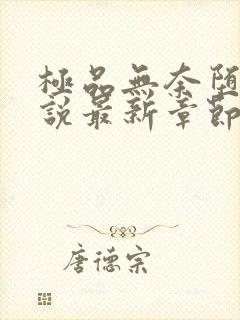 極品無奈墮
說最新章節
唐德宗